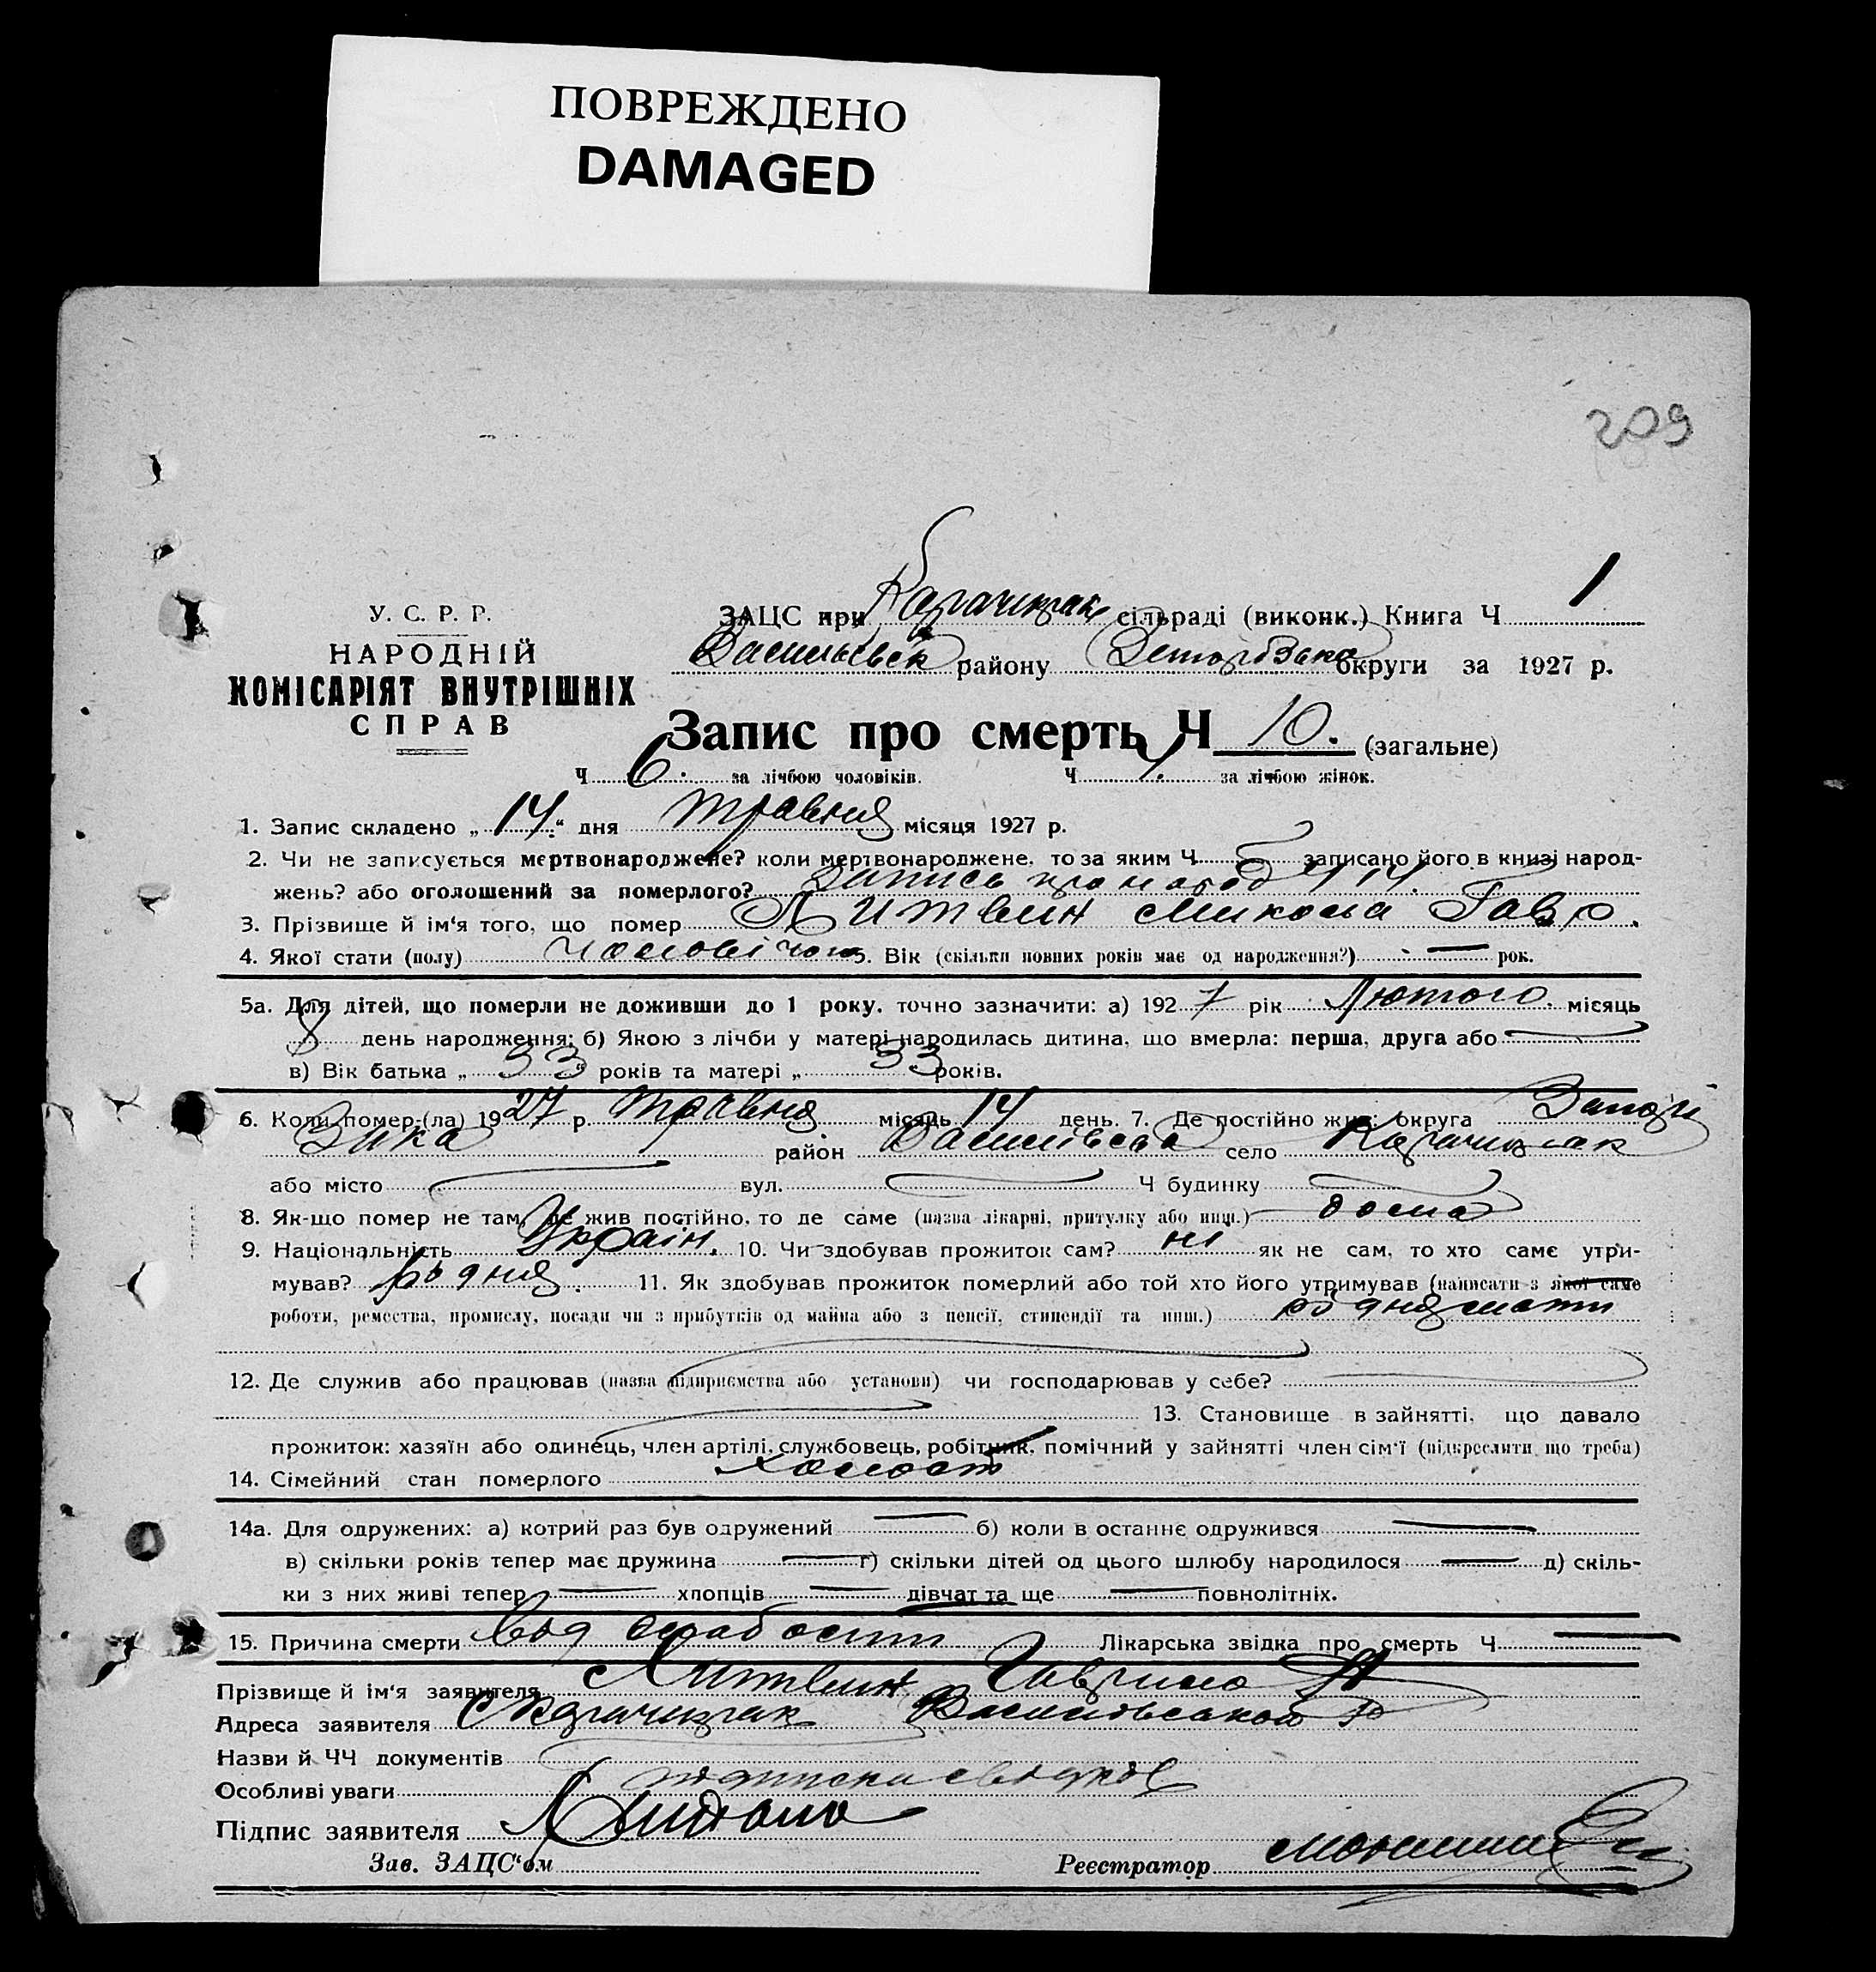 ПОВРЕЖДЕНО
DAMAGED
209
У. С. Р. Р.
НАРОДНІЙ
КОМІСАРІЯТ ВНУТРІШНІХ
СПРАВ
ЗАЦС при Карачикрак сільраді (виконк.) Книга Ч 1
Васильівськ району округи за 1927 р.
Запис про смерть Ч 10. (загальне)
Ч 6. за лічбою чоловіків. Ч за лічбою жінок.
1. Запис складено „14.“ дня травня місяця 1927 р.
2. Чи не записується мертвонароджене? коли мертвонароджене, то за яким Ч записано його в книзі народ-
жень? або оголошений за померлого? Запись про народ Ч 14.
3. Прізвище й ім'я того, що помер Литвин Микола Гавр.
4. Якої стати (полу) чоловічого 5. Вік (скільки повних років має од народження?) — рок.
5а. Для дітей, що померли не доживши до 1 року, точно зазначити: а) 1927 рік Лютого. місяць
8 день народження; б) Якою з лічби у матері народилась дитина, що вмерла: перша, друга або
в) Вік батька „33 років та матері „33 років.
6. Коли помер-(ла) 1927 р. травня місяць 14 день. 7. Де постійно жив: округа Запорі
Зька район Васильівськ село Карачикрак
або місто вул. Ч будинку
8. Як-що помер не там, де жив постійно, то де саме (назва лікарні, притулку або инш.) дома
9. Національність Україн. 10. Чи здобував прожиток сам? ні як не сам, то хто саме утри-
мував? рідня. 11. Як здобував прожиток померлий або той хто його утримував (написати з якої саме
роботи, ремества, промислу, посади чи з прибутків од майна або з пенсії, стипендії та инш.) рідня мати
12. Де служив або працював (назва підприємства або установи) чи господарював у себе?
13. Становище в зайнятті, що давало
прожиток: хазяїн або одинець, член артілі, службовець, робітник, помічний у зайнятті член сім'ї (підкреслити що треба)
14. Сімейний стан померлого холост
14а. Для одружених: а) котрий раз був одружений — б) коли в останнє одружився —
в) скільки років тепер має дружина — г) скільки дітей од цього шлюбу народилося — д) скіль-
ки з них живі тепер — хлопців — дівчат та ще — повнолітніх.
15. Причина смерти Від слабости Лікарська звідка про смерть Ч —
Прізвище й ім'я заявителя Литвин Гаврило
Адреса заявителя с Карачикрак Васильівського р
Назви й ЧЧ документів
Особливі уваги
Підпис заявителя
Зав. ЗАЦС'ом Реєстратор